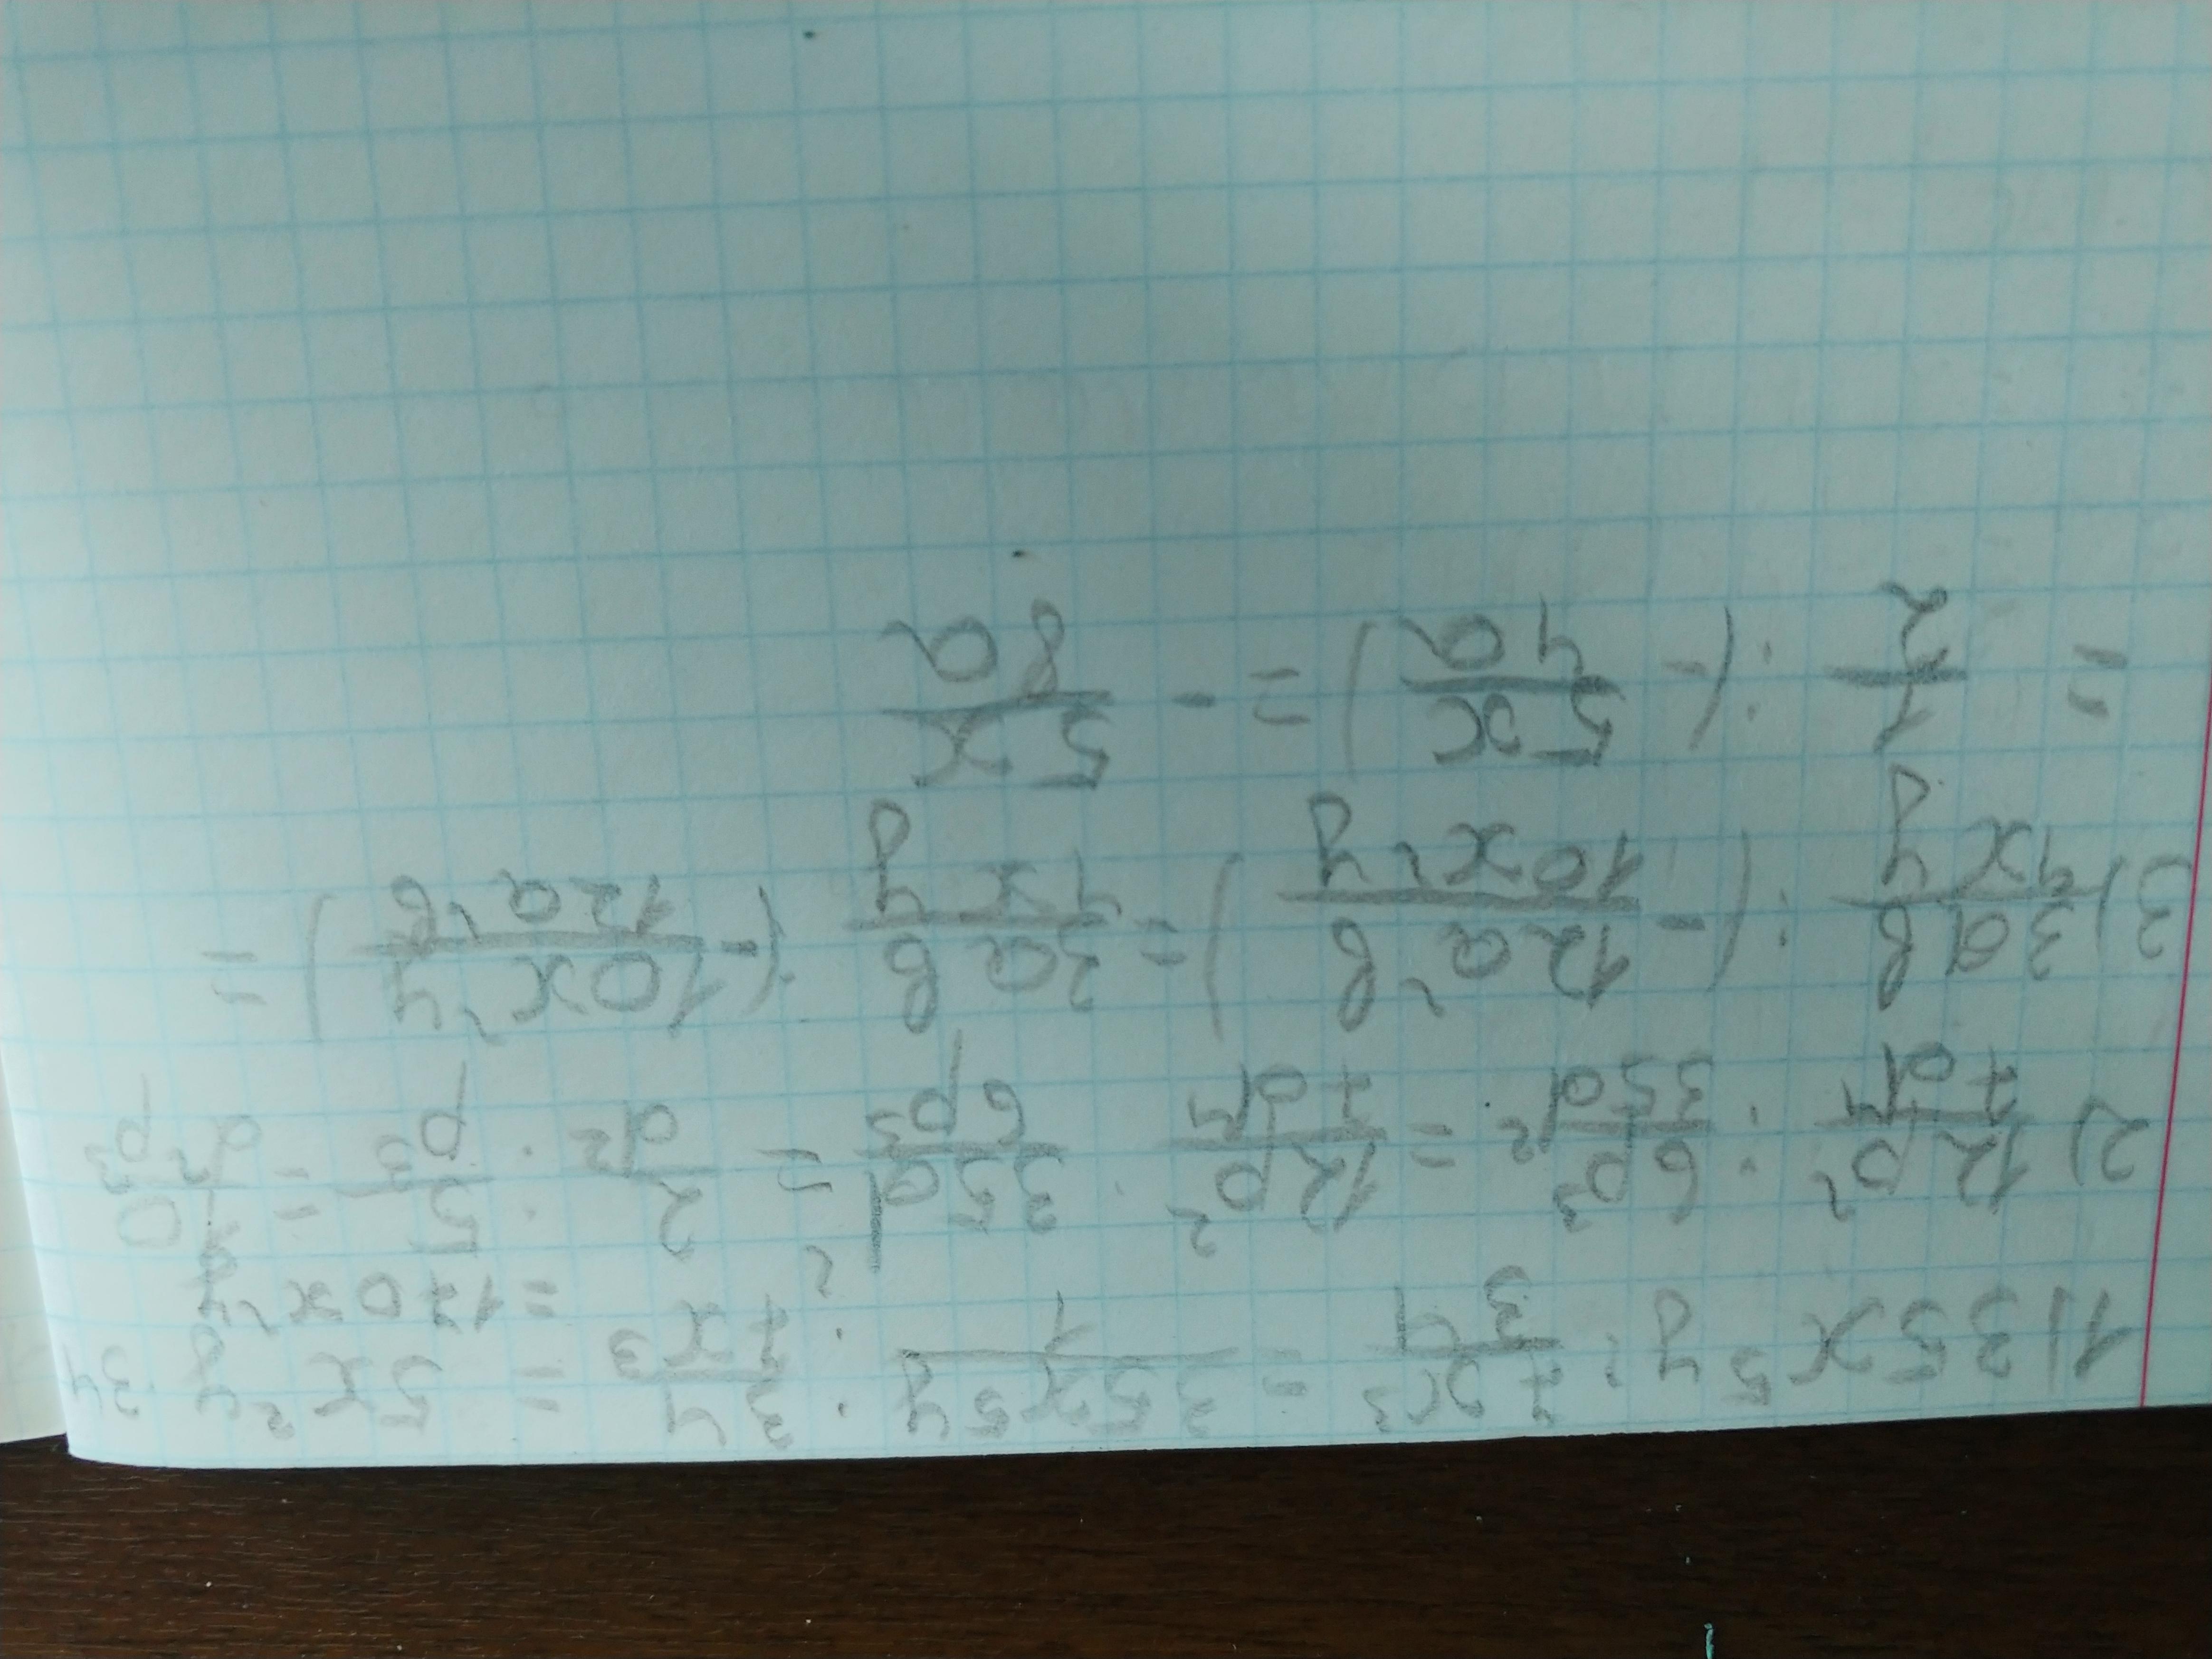 1) 35x⁵y : 7x³/34 = 35x⁵y/1 · 34/7x³ = 5x²y · 34
= 170x²y
2) 12p²/7q⁴ : 6p³/35q² = 12p²/7q⁴ · 35q²/6p³ = 2/q² · 5/p³ = 10/q²p³
3) 3ab/4xy : (-12a²b/10x²y) = 3ab/4xy · (-10x²y/12a²b) =
= 1/2 : (-5x/4a) = -5x/8a